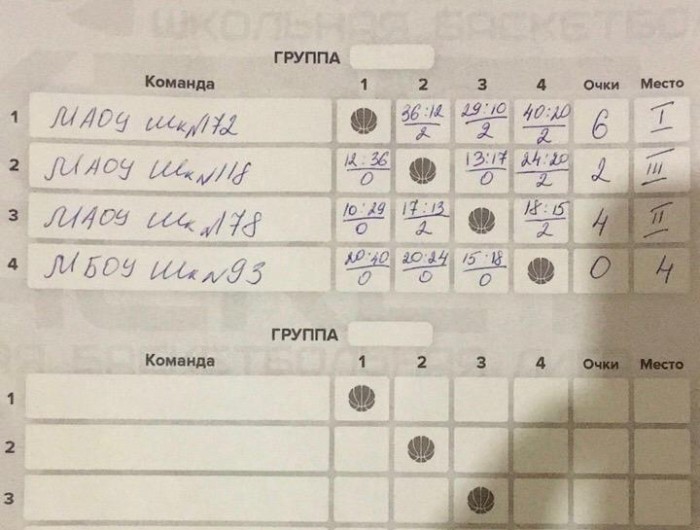 ШКОЛЬНАЯ БАСКЕТБО
ГРУППА
Команда 1 2 3 4 Очки Место
1 МАОУ Шк№172 36:12/2 29:10/2 40:20/2 6 I
2 МАОУ Шк№118 12:36/0 13:17/0 24:20/2 2 III
3 МАОУ Шк№178 10:29/0 17:13/2 18:15/2 4 II
4 МБОУ Шк№93 20:40/0 20:24/0 15:18/0 0 4
ГРУППА
Команда 1 2 3 4 Очки Место
1
2
3